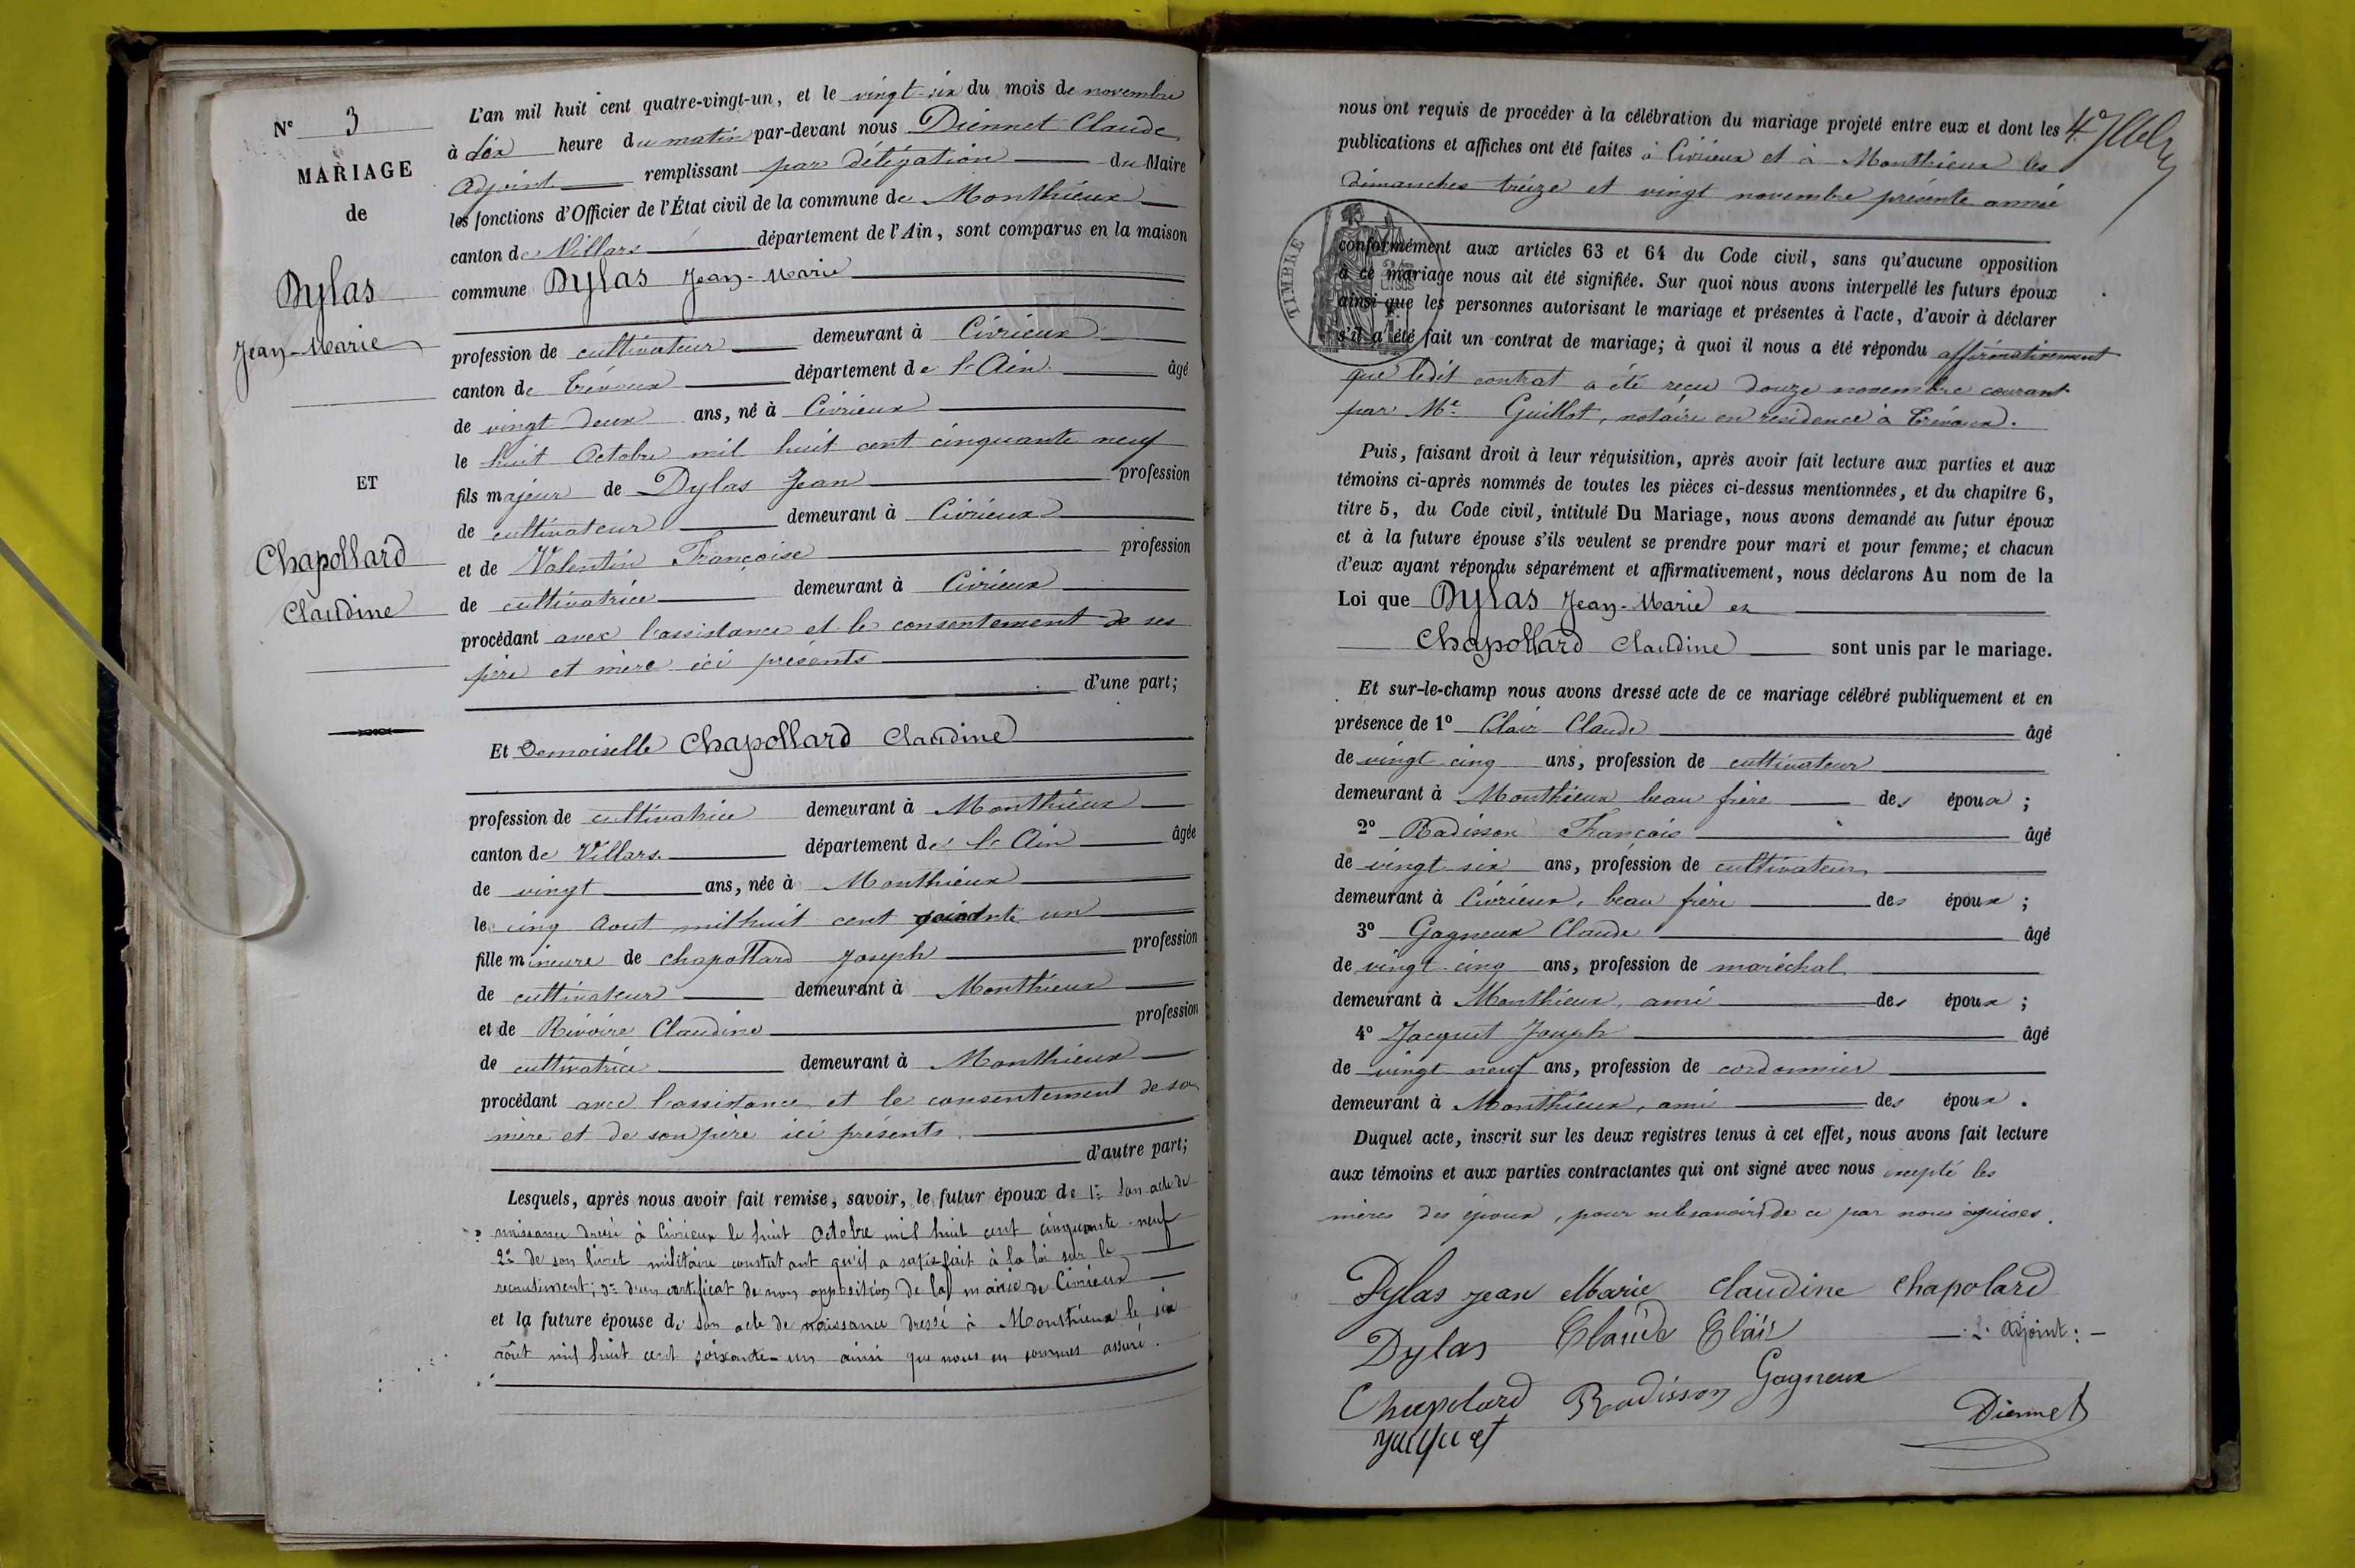 N° 3
MARIAGE
de
Dylas
Jean-Marie
ET
Chapollard
Claudine
L'an mil huit cent quatre-vingt-un, et le vingt-six du mois de novembre
à dix heure du matin par-devant nous Diennet Claude
Adjoint remplissant par délégation du Maire
les fonctions d'Officier de l'État civil de la commune de Monthieux
canton de Villars département de l'Ain, sont comparus en la maison
commune Dylas Jean-Marie
profession de cultivateur demeurant à Civrieux
canton de Trévoux département de l'Ain âgé
de vingt deux ans, né à Civrieux
le huit Octobre mil huit cent cinquante neuf
fils majeur de Dylas Jean profession
de cultivateur demeurant à Civrieux
et de Valentin Françoise profession
de cultivatrice demeurant à Civrieux
procédant avec l'assistance et le consentement de ses
père et mère ici présents
d'une part;
Et Demoiselle Chapollard Claudine
profession de cultivatrice demeurant à Monthieux
canton de Villars département de l'Ain âgée
de vingt ans, née à Monthieux
le cinq Aout mil huit cent un
fille mineure de Chapollard Joseph profession
de cultivateur demeurant à Monthieux
et de Rivoire Claudine profession
de cultivatrice demeurant à Monthieux
procédant avec l'assistance et le consentement de sa
mère et de son père ici présents.
d'autre part;
Lesquels, après nous avoir fait remise, savoir, le futur époux de 1° Son acte de
naissance dressé à Civrieux le huit Octobre mil huit cent cinquante-neuf
2° de son livret militaire constatant qu'il a satisfait à la loi sur le
recrutement; 3° d'un certificat de non opposition de la mairie de Civrieux
et la future épouse de son acte de naissance dressé à Monthieux le six
août mil huit cent soixante-un ainsi que nous en sommes assuré.
nous ont requis de procéder à la célébration du mariage projeté entre eux et dont les
publications et affiches ont été faites à Civrieux et à Monthieux les
dimanches treize et vingt novembre présente année
TIMBRE
conformément aux articles 63 et 64 du Code civil, sans qu'aucune opposition
à ce mariage nous ait été signifiée. Sur quoi nous avons interpellé les futurs époux
ainsi que les personnes autorisant le mariage et présentes à l'acte, d'avoir à déclarer
s'il a été fait un contrat de mariage; à quoi il nous a été répondu affirmativement
que ledit contrat a été reçu douze novembre courant
par Me Guillot, notaire en résidence à Trévoux.
Puis, faisant droit à leur réquisition, après avoir fait lecture aux parties et aux
témoins ci-après nommés de toutes les pièces ci-dessus mentionnées, et du chapitre 6,
titre 5, du Code civil, intitulé Du Mariage, nous avons demandé au futur époux
et à la future épouse s'ils veulent se prendre pour mari et pour femme; et chacun
d'eux ayant répondu séparément et affirmativement, nous déclarons Au nom de la
Loi que Dylas Jean-Marie et
Chapollard Claudine sont unis par le mariage.
Et sur-le-champ nous avons dressé acte de ce mariage célébré publiquement et en
présence de 1° Clair Claude âgé
de vingt-cinq ans, profession de cultivateur
demeurant à Monthieux beau frère des époux;
2° Radisson François âgé
de vingt-six ans, profession de cultivateur
demeurant à Civrieux, beau frère des époux;
3° Gagneux Claude âgé
de vingt-cinq ans, profession de maréchal
demeurant à Monthieux, ami des époux;
4° Jacquet Joseph âgé
de vingt neuf ans, profession de cordonnier
demeurant à Monthieux, ami des époux.
Duquel acte, inscrit sur les deux registres tenus à cet effet, nous avons fait lecture
aux témoins et aux parties contractantes qui ont signé avec nous excepté les
mères des époux, pour ne le savoir de ce par nous requises.
Dylas jean Marie Claudine Chapolard
Dylas Claude Clair L'Adjoint:
Chapolard Radisson Gagneux
Jacquet Diennet